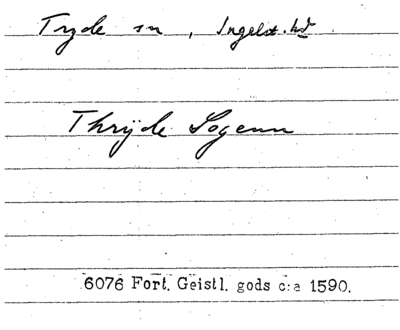 Tryde sn, Ingelst. hd
Thrijde Sogenn
6076 Fort. Geistl. gods c:a 1590.